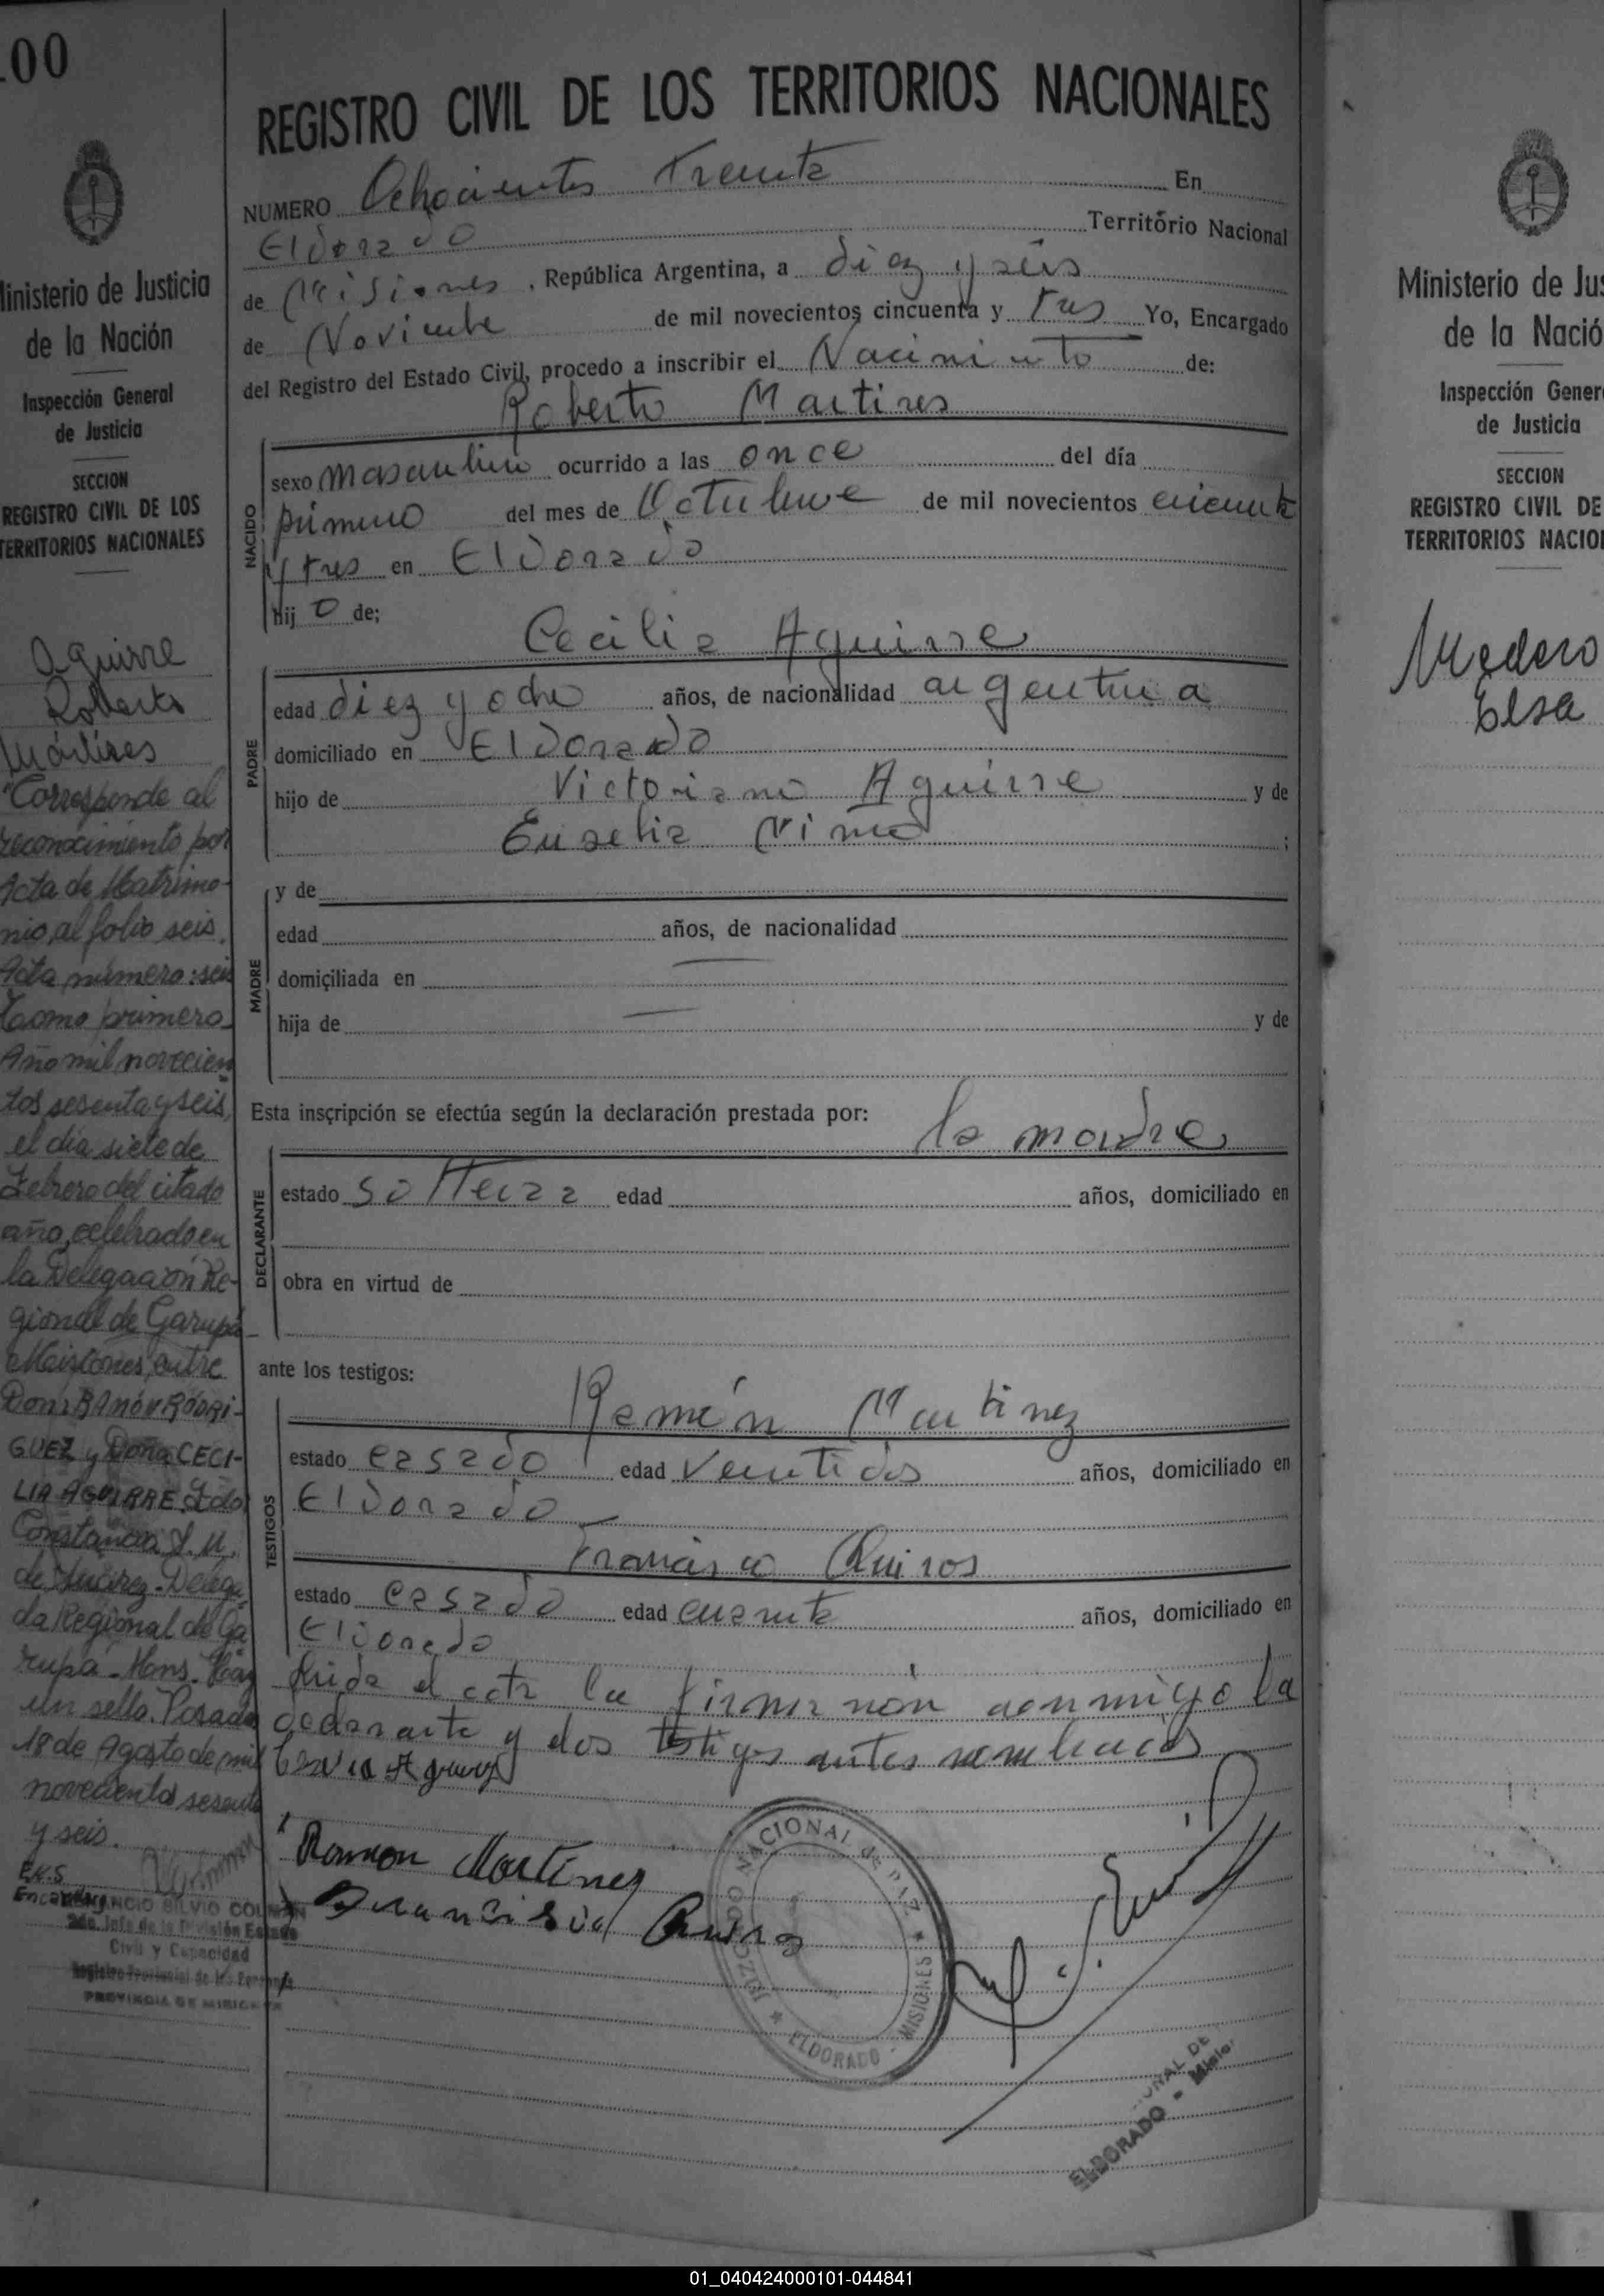 .00
Ministerio de Justicia
de la Nación
Inspección General
de Justicia
SECCION
REGISTRO CIVIL DE LOS
TERRITORIOS NACIONALES
Aguirre
Roberto
Mártires
"Corresponde al
reconocimiento por
Acta de Matrimo-
nio, al folio seis.
Acta número: seis
Tomo primero
Año mil novecien
tos sesenta y seis,
el día siete de
Febrero del citado
año, celebrado en
la Delegación Re-
gional de Garupá
Misiones, entre
Don: RAMÓN RODRI-
GUEZ y Doña CECI-
LIA AGUIRRE. Fdo
Constancia J. M.
de Juárez - Delega
da Regional de Ga
rupá - Mons. Hay
un sello. Posadas
18 de Agosto de mil
novecientos sesenta
y seis.
E.K.S
SILVIO COLMAN
2do. Jefe de la División Estado
Civil y Capacidad
Registro Provincial de las Personas
PROVINCIA DE MISIONES
REGISTRO CIVIL DE LOS TERRITORIOS NACIONALES
NUMERO Ochocientos Treinta En
Eldorado Territorio Nacional
de Misiones, República Argentina, a diez y seis
de Noviembre de mil novecientos cincuenta y tres Yo, Encargado
del Registro del Estado Civil, procedo a inscribir el Nacimiento de:
Roberto Martires
NACIDO
sexo masculino ocurrido a las once del día
primero del mes de Octubre de mil novecientos cincuenta
y tres en Eldorado
hijo de;
Cecilia Aguirre
PADRE
edad diez y ocho años, de nacionalidad argentina
domiciliado en Eldorado
hijo de Victoriano Aguirre y de
Eusebia ;
MADRE
y de
edad años, de nacionalidad
domiciliada en
hija de y de
Esta inscripción se efectúa según la declaración prestada por: la madre
DECLARANTE
estado soltera edad años, domiciliado en
obra en virtud de
ante los testigos:
Ramón Martinez
TESTIGOS
estado casado edad veintidos años, domiciliado en
Eldorado
Francisco Quiros
estado casado edad cuarenta años, domiciliado en
Eldorado
leida el acta la firmaron conmigo la
declarante y dos testigos antes nombrados
Ramon Martinez
Francisco Quiros
JUZGADO NACIONAL de PAZ
ELDORADO - MISIONES
ONAL DE
ELDORADO - Misior
Ministerio de Jus
de la Nació
Inspección Genera
de Justicia
SECCION
REGISTRO CIVIL DE
TERRITORIOS NACION
Medero
Elsa
01_040424000101-044841